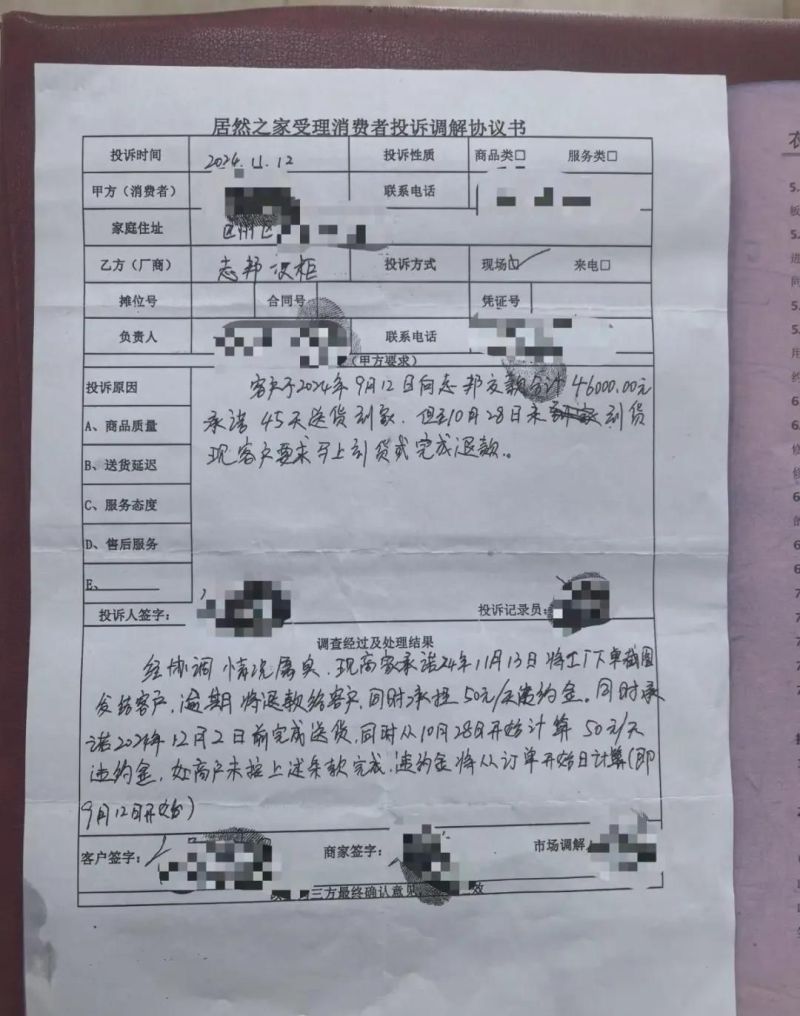 居然之家受理消费者投诉调解协议书
投诉时间 2024.11.12 投诉性质 商品类□ 服务类□
甲方（消费者） 联系电话
家庭住址
乙方（厂商） 志邦 柜 投诉方式 现场☑ 来电□
摊位号 合同号 凭证号
负责人 联系电话
（甲方要求）
投诉原因
A、商品质量
B、送货延迟
C、服务态度
D、售后服务
E、
客户于2024年9月12日向志邦交款合计46000.00元
承诺45天送货到家，但到10月28日未到货
现客户要求马上到货或完成退款。
投诉人签字： 投诉记录员：
调查经过及处理结果
经协调情况属实，现商家承诺24年11月13日将工厂下单截图
发给客户，逾期将退款给客户，同时承担50元/天违约金。同时承
诺2024年12月2日前完成送货，同时从10月28日开始计算50元/天
违约金，如商户未按上述条款完成，违约金将从订单开始日计算(即
9月12日开始)
客户签字： 商家签字： 市场调解
三方最终确认意见 效
5.
板
5.
5.
进
同
5.
5.
用
约
6
6.
修
修
6
的
6
6
7
7
7
7
7